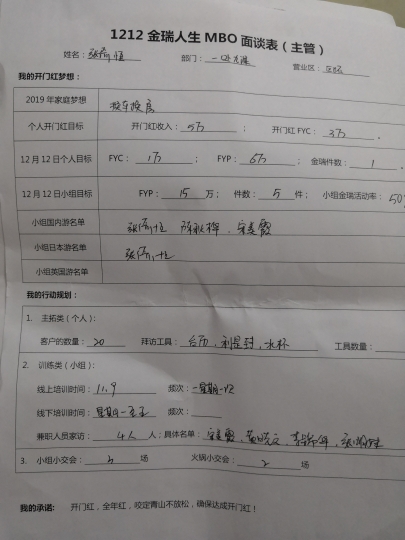 1212 金瑞人生 MBO 面谈表（主管）
姓名： 部门： 营业区：
我的开门红梦想：
2019 年家庭梦想 换车换房
个人开门红目标 开门红收入： 5万 ； 开门红 FYC： 3万 。
12 月 12 日个人目标 FYC： 1万 ； FYP： 6万 ； 金瑞件数： 1 。
12 月 12 日小组目标 FYP： 15 万； 件数： 5 件； 小组金瑞活动率： 50
小组国内游名单
小组日本游名单
小组英国游名单
我的行动规划：
1. 主拓类（个人）：
客户的数量： 20 拜访工具： 台历，利是封，水杯 工具数量：
2. 训练类（小组）：
线上培训时间： 11.9 频次： 一星期一次
线下培训时间： 星期一至五 频次：
兼职人员家访： 4人 人；具体名单：
3. 小组小交会： 3 场 火锅小交会： 2 场
我的承诺： 开门红，全年红，咬定青山不放松，确保达成开门红！